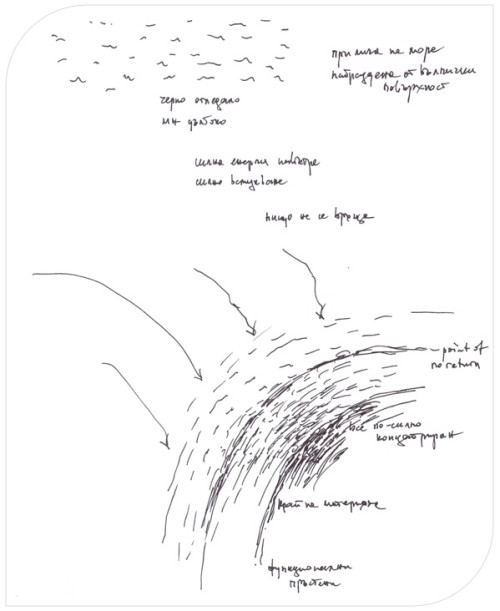 прилича на море
набраздена от вълнички
повърхност
черно огледало
мн дълбоко
силна енергия навътре
силно всмукване
нищо не се връща
point of
no return
все по-силно
концентриран
край на материята
функционални
пръстени